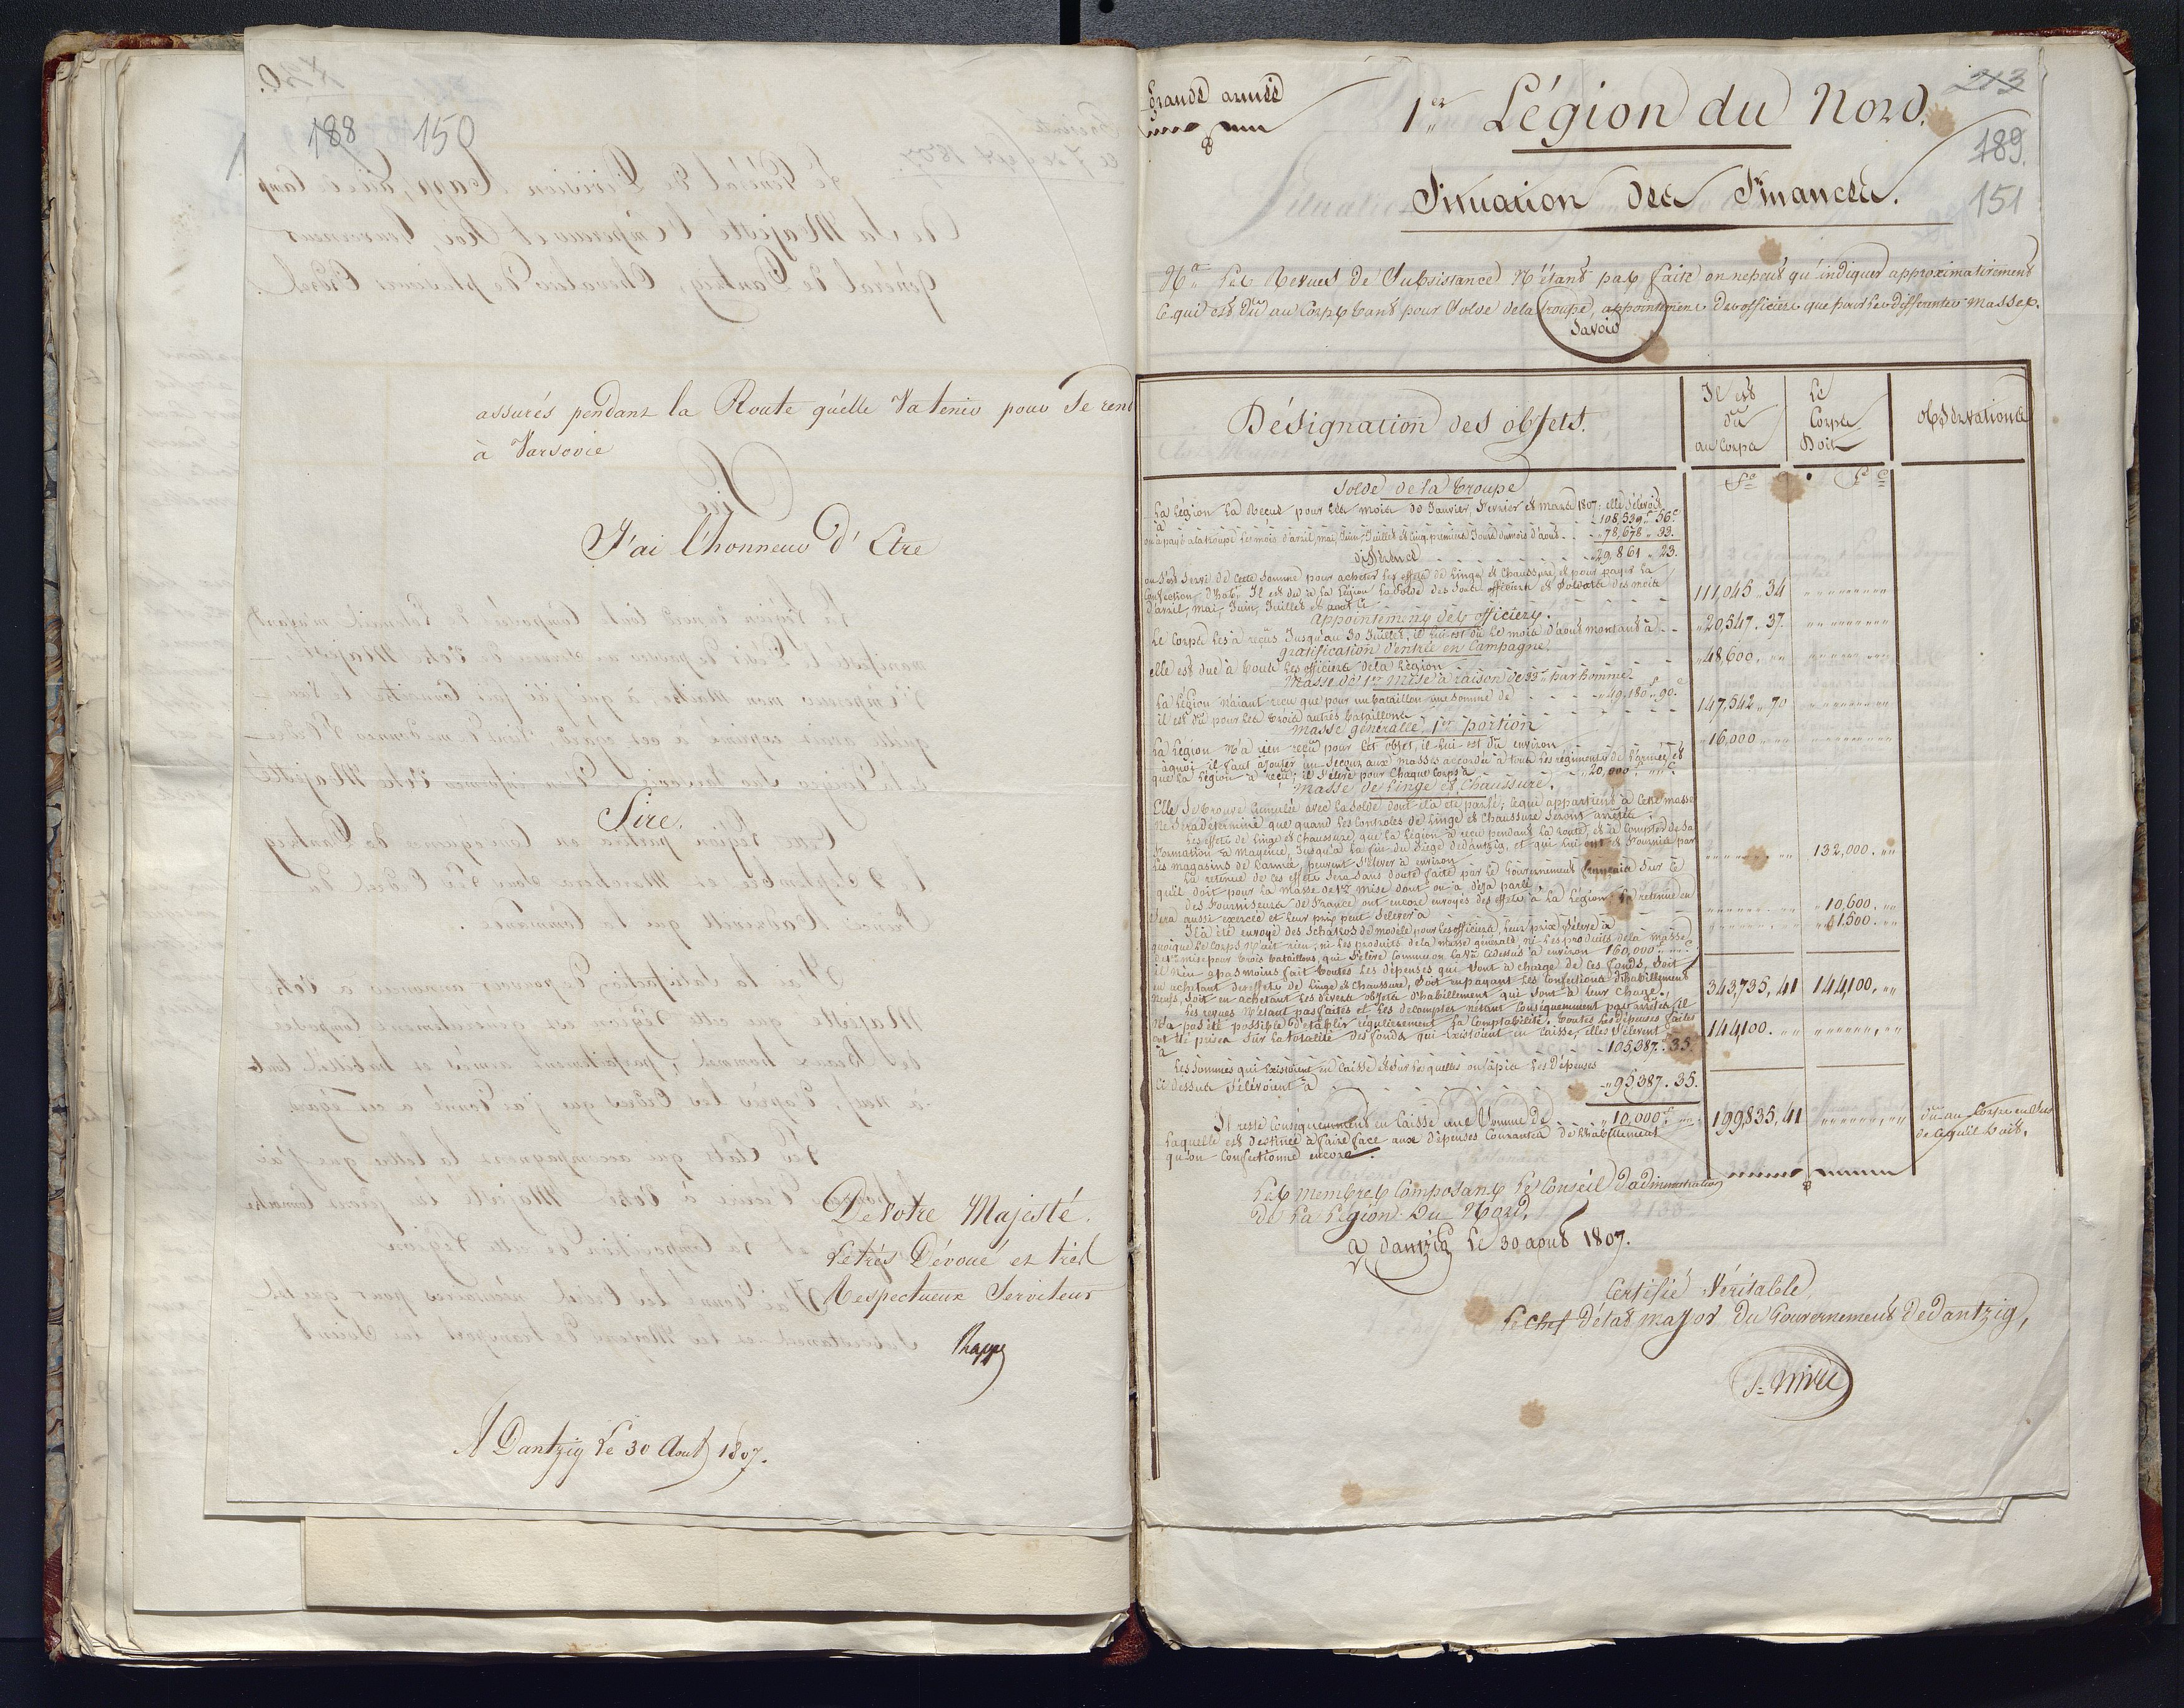 188 150
assurés pendant la Route qu'elle Va tenir pour Se rend
à Varsovie
J'ai l'honneur d'Etre
Sire.
De Votre Majesté.
Le très Dévoué et très
Respectueux Serviteur
Rapp
A Dantzig Le 30 Aout 1807.
Grande armée
1er Légion du Nord.
213
189.
151
Situation des Finances.
Na Les Revues de Subsistances N'étant pas faites on ne peut qu'indiquer approximativement
Ce qui est Dû au Corps tant pour Solde de la troupe, appointements Des officiers que pour Les differentes Masses.
Savoir
Désignation des objets.
Il est
dû
au Corps
Le
Corps
Doit
Observations
Fs C
Fs C
Solde de la troupe
La Légion La Reçue pour Les mois De Janvier, Fevrier et mars 1807: elle S'élevoit
à 108,539 56c
on a payé a la troupe Les mois d'avril, mai, Juin, Juillet et Cinq premiers Jours du mois d'aout 78,678 33.
différence 29,861 23.
on S'est Servi de Cette Somme pour acheter Les effets de Linge et Chaussure et pour payer La
Confection d'hab.ts Il est dû à La Légion La Solde des Sous officiers et Soldats des mois
d'avril, mai, Juin, Juillet et aout Ci 111,045 34
Appointements des officiers.
Le Corps Les a reçus Jusqu'au 30 Juillet; il lui est dû Le mois d'aout montant à 20,547. 37
gratification d'entrée en Campagne.
elle est due à toute Les officiers de la Légion 48,600
Masse de 1re Mise à raison de 33 par homme
La Légion N'aiant reçu que pour un bataillon une Somme de 49,180 90.
il est dû pour Les trois autres bataillons 147,542 70
Masse générale 1re portion
La Légion N'a rien reçu pour Cet objet, il Lui est dû environ 16,000
à quoi il faut ajouter un Secours aux masses accordée à tous Les régiments de L'armée et
que La Légion a reçu; il S'élève pour Chaque Corps à 20,000
Masse de Linge et Chaussure.
Elle Se trouve Cumulée avec La Solde dont il a été parlé; Ce qui appartient à Cette masse
Ne Sera déterminé que quand Les Controles de Linge et Chaussure Seront arrêtés.
Les effets de Linge et Chaussure que La Légion a reçu pendant La route, et à Compter de Sa
formation à Mayence, Jusqu'à La fin du Siege de dantzig, et qui Lui ont été Fournis par
Les magasins de L'armée, peuvent S'élever à environ 132,000.
La retenue de Ces effets Sera Sans doute faite par Le Gouvernement français Sur Ce
qu'il doit pour La Masse de 1re mise dont on a déja parlé
Des Fournisseurs de France ont encore envoyés des effets à La Légion; La retenue en
Sera aussi exercée et Leur prix peut S'élever à 10,600.
Il a été envoyé des Schakos de modèle pour Les officiers, Leur prix S'élève à 1.500.
quoique Le Corps N'ait rien, ni Les produits de la masse générale ni Les produits de la masse
de 1re mise pour trois bataillons, qui S'élève Comme on La Vu Cidessus à environ 160,000
il N'en a pas moins fait toutes Les dépenses qui Sont à charge de Ces fonds, Soit
en achetant des effets de Linge et Chaussure, Soit en payant Les Confections d'habillement
Neufs, Soit en achetant Les divers objets d'habillement qui Sont à Leur Charge. 343,735, 41 144,100,
Les revues N'étant pas faites et Les décomptes N'étant Conséquemment pas arrêtés, il
N'a pas été possible d'établir régulierement La Comptabilité. toutes Les Dépenses faites
ont été prises Sur La totalité des fonds qui Existoient en Caisse, elles S'élevent 144,100.
à 105,387. 35.
Les Sommes qui Existoient en Caisse et Sur Lesquelles on a pris Les Dépenses
Ci dessus S'élevoient à 95,387. 35.
Il reste Conséquemment en Caisse une Somme De 10,000 199,835, 41
Laquelle est destinée à faire face aux Dépenses Courantes de L'habillement
qu'on Confectionne encore.
dû au Corps en Sus
de Ce qu'il Doit.
Les Membres Composant Le Conseil D'administration
de La Légion Du Nord.
a Dantzig Le 30 aout 1807.
Certifié Véritable
Le Chef D'état major Du Gouvernement De dantzig,